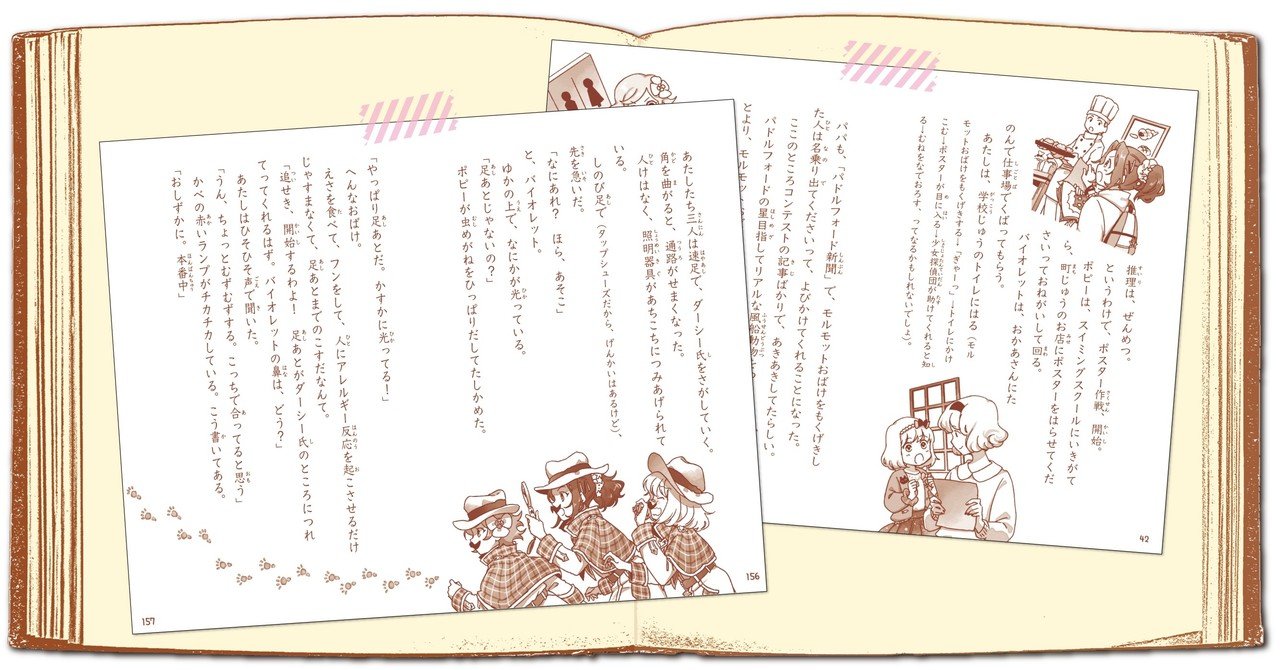 推理は、ぜんめつ。
というわけで、ポスター作戦、開始。
ポピーは、スイミングスクールにいきがて
ら、町じゅうのお店にポスターをはらせてくだ
さいっておねがいして回る。
バイオレットは、おかあさんにた
のんで仕事場でくばってもらう。
あたしは、学校じゅうのトイレにはる（モル
モットおばけをもくげきする→「ぎゃーっ」→トイレにかけ
こむ→ポスターが目に入る→少女探偵団が助けてくれると知
る→むねをなでおろす、ってなるかもしれないでしょ）。
パパも、「パドルフォード新聞」で、モルモットおばけをもくげきし
た人は名乗り出てくださいって、よびかけてくれることになった。
ここのところコンテストの記事ばかりで、あきあきしてたらしい。
パドルフォードの星目指してリアルな風船動物
とより、モルモッ
42
あたしたち三人は速足で、ダーシー氏をさがしていく。
角を曲がると、通路がせまくなった。
人けはなく、照明器具があちこちにつみあげられて
いる。
しのび足で（タップシューズだから、げんかいはあるけど）、
先を急いだ。
「なにあれ？　ほら、あそこ」
と、バイオレット。
ゆかの上で、なにかが光っている。
「足あとじゃないの？」
ポピーが虫めがねをひっぱりだしてたしかめた。
156
「やっぱり足あとだ。かすかに光ってる！」
へんなおばけ。
えさを食べて、フンをして、人にアレルギー反応を起こさせるだけ
じゃすまなくて、足あとまでのこすだなんて。
「追せき、開始するわよ！　足あとがダーシー氏のところにつれ
てってくれるはず。バイオレットの鼻は、どう？」
あたしはひそひそ声で聞いた。
「うん、ちょっとむずむずする。こっちで合ってると思う」
かべの赤いランプがチカチカしている。こう書いてある。
「おしずかに。本番中」
157